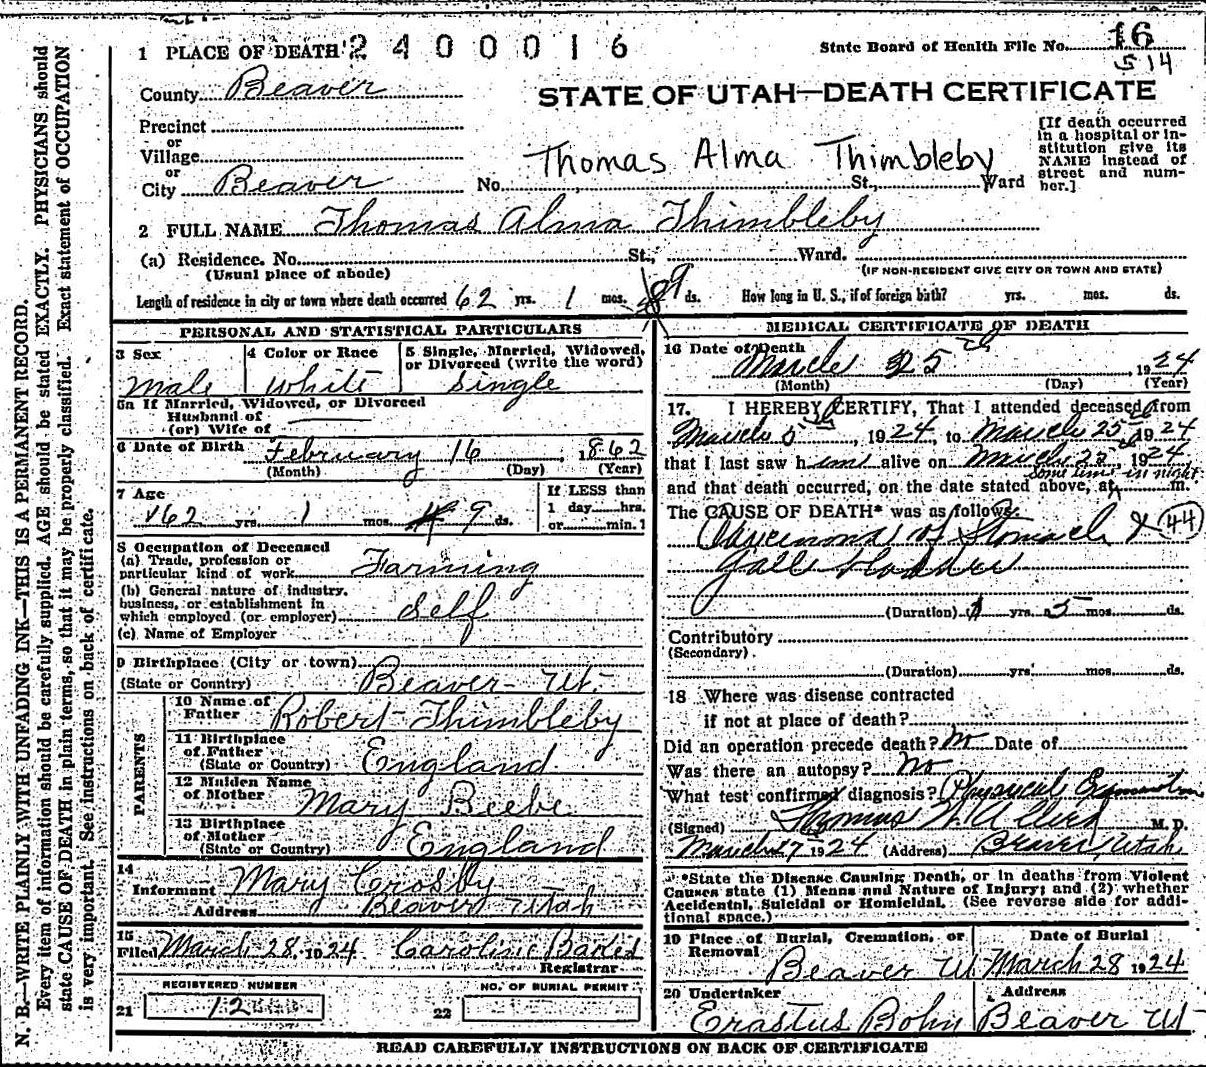 1 PLACE OF DEATH 2400016
State Board of Health File No. 16
514
County Beaver
STATE OF UTAH—DEATH CERTIFICATE
Precinct
or
Village
or
City Beaver No. St., Ward
Thomas Alma Thimbleby
[If death occurred
in a hospital or in-
stitution give its
NAME instead of
street and num-
ber.]
2 FULL NAME Thomas Alma Thimbleby
(a) Residence. No. St., Ward.
(Usual place of abode) (IF NON-RESIDENT GIVE CITY OR TOWN AND STATE)
Length of residence in city or town where death occurred 62 yrs. 1 mos. 9 ds. How long in U. S., if of foreign birth? yrs. mos. ds.
PERSONAL AND STATISTICAL PARTICULARS
3 Sex
Male
4 Color or Race
White
5 Single, Married, Widowed,
or Divorced (write the word)
Single
5a If Married, Widowed, or Divorced
Husband of
(or) Wife of
6 Date of Birth February 16, 1862
(Month) (Day) (Year)
7 Age
62 yrs. 1 mos. 9 ds.
If LESS than
1 day hrs.
or min.?
8 Occupation of Deceased
(a) Trade, profession or
particular kind of work Farming
(b) General nature of industry,
business, or establishment in
which employed (or employer) Self
(c) Name of Employer
9 Birthplace (City or town)
(State or Country) Beaver - Ut.
PARENTS
10 Name of
Father Robert Thimbleby
11 Birthplace
of Father
(State or Country) England
12 Maiden Name
of Mother Mary Beebe
13 Birthplace
of Mother
(State or Country) England
14
Informant Mary Crosby
Address Beaver Utah
15
Filed March 28, 1924 Caroline
Registrar
REGISTERED NUMBER
21 12
NO. OF BURIAL PERMIT
22
MEDICAL CERTIFICATE OF DEATH
16 Date of Death
March 25th, 1924
(Month) (Day) (Year)
17. I HEREBY CERTIFY, That I attended deceased from
March 5, 1924, to March 25th 1924
that I last saw him alive on March 25th, 1924
some time in night
and that death occurred, on the date stated above, at m.
The CAUSE OF DEATH* was as follows:
of Stomach & 44
Gall bladder
(Duration) yrs. 5 mos. ds.
Contributory
(Secondary)
(Duration) yrs. mos. ds.
18 Where was disease contracted
if not at place of death?
Did an operation precede death? No Date of
Was there an autopsy? No
What test confirmed diagnosis? Physical
(Signed) Thomas M.D.
March 27 1924 (Address) Beaver, Utah
*State the Disease Causing Death, or in deaths from Violent
Causes state (1) Means and Nature of Injury; and (2) whether
Accidental, Suicidal or Homicidal. (See reverse side for addi-
tional space.)
19 Place of Burial, Cremation, or
Removal
Beaver Ut
Date of Burial
March 28 1924
20 Undertaker
Erastus Bohn
Address
Beaver Ut
READ CAREFULLY INSTRUCTIONS ON BACK OF CERTIFICATE
N. B.—WRITE PLAINLY WITH UNFADING INK—THIS IS A PERMANENT RECORD.
Every item of information should be carefully supplied. AGE should be stated EXACTLY. PHYSICIANS should
state CAUSE OF DEATH in plain terms, so that it may be properly classified. Exact statement of OCCUPATION
is very important. See instructions on back of certificate.